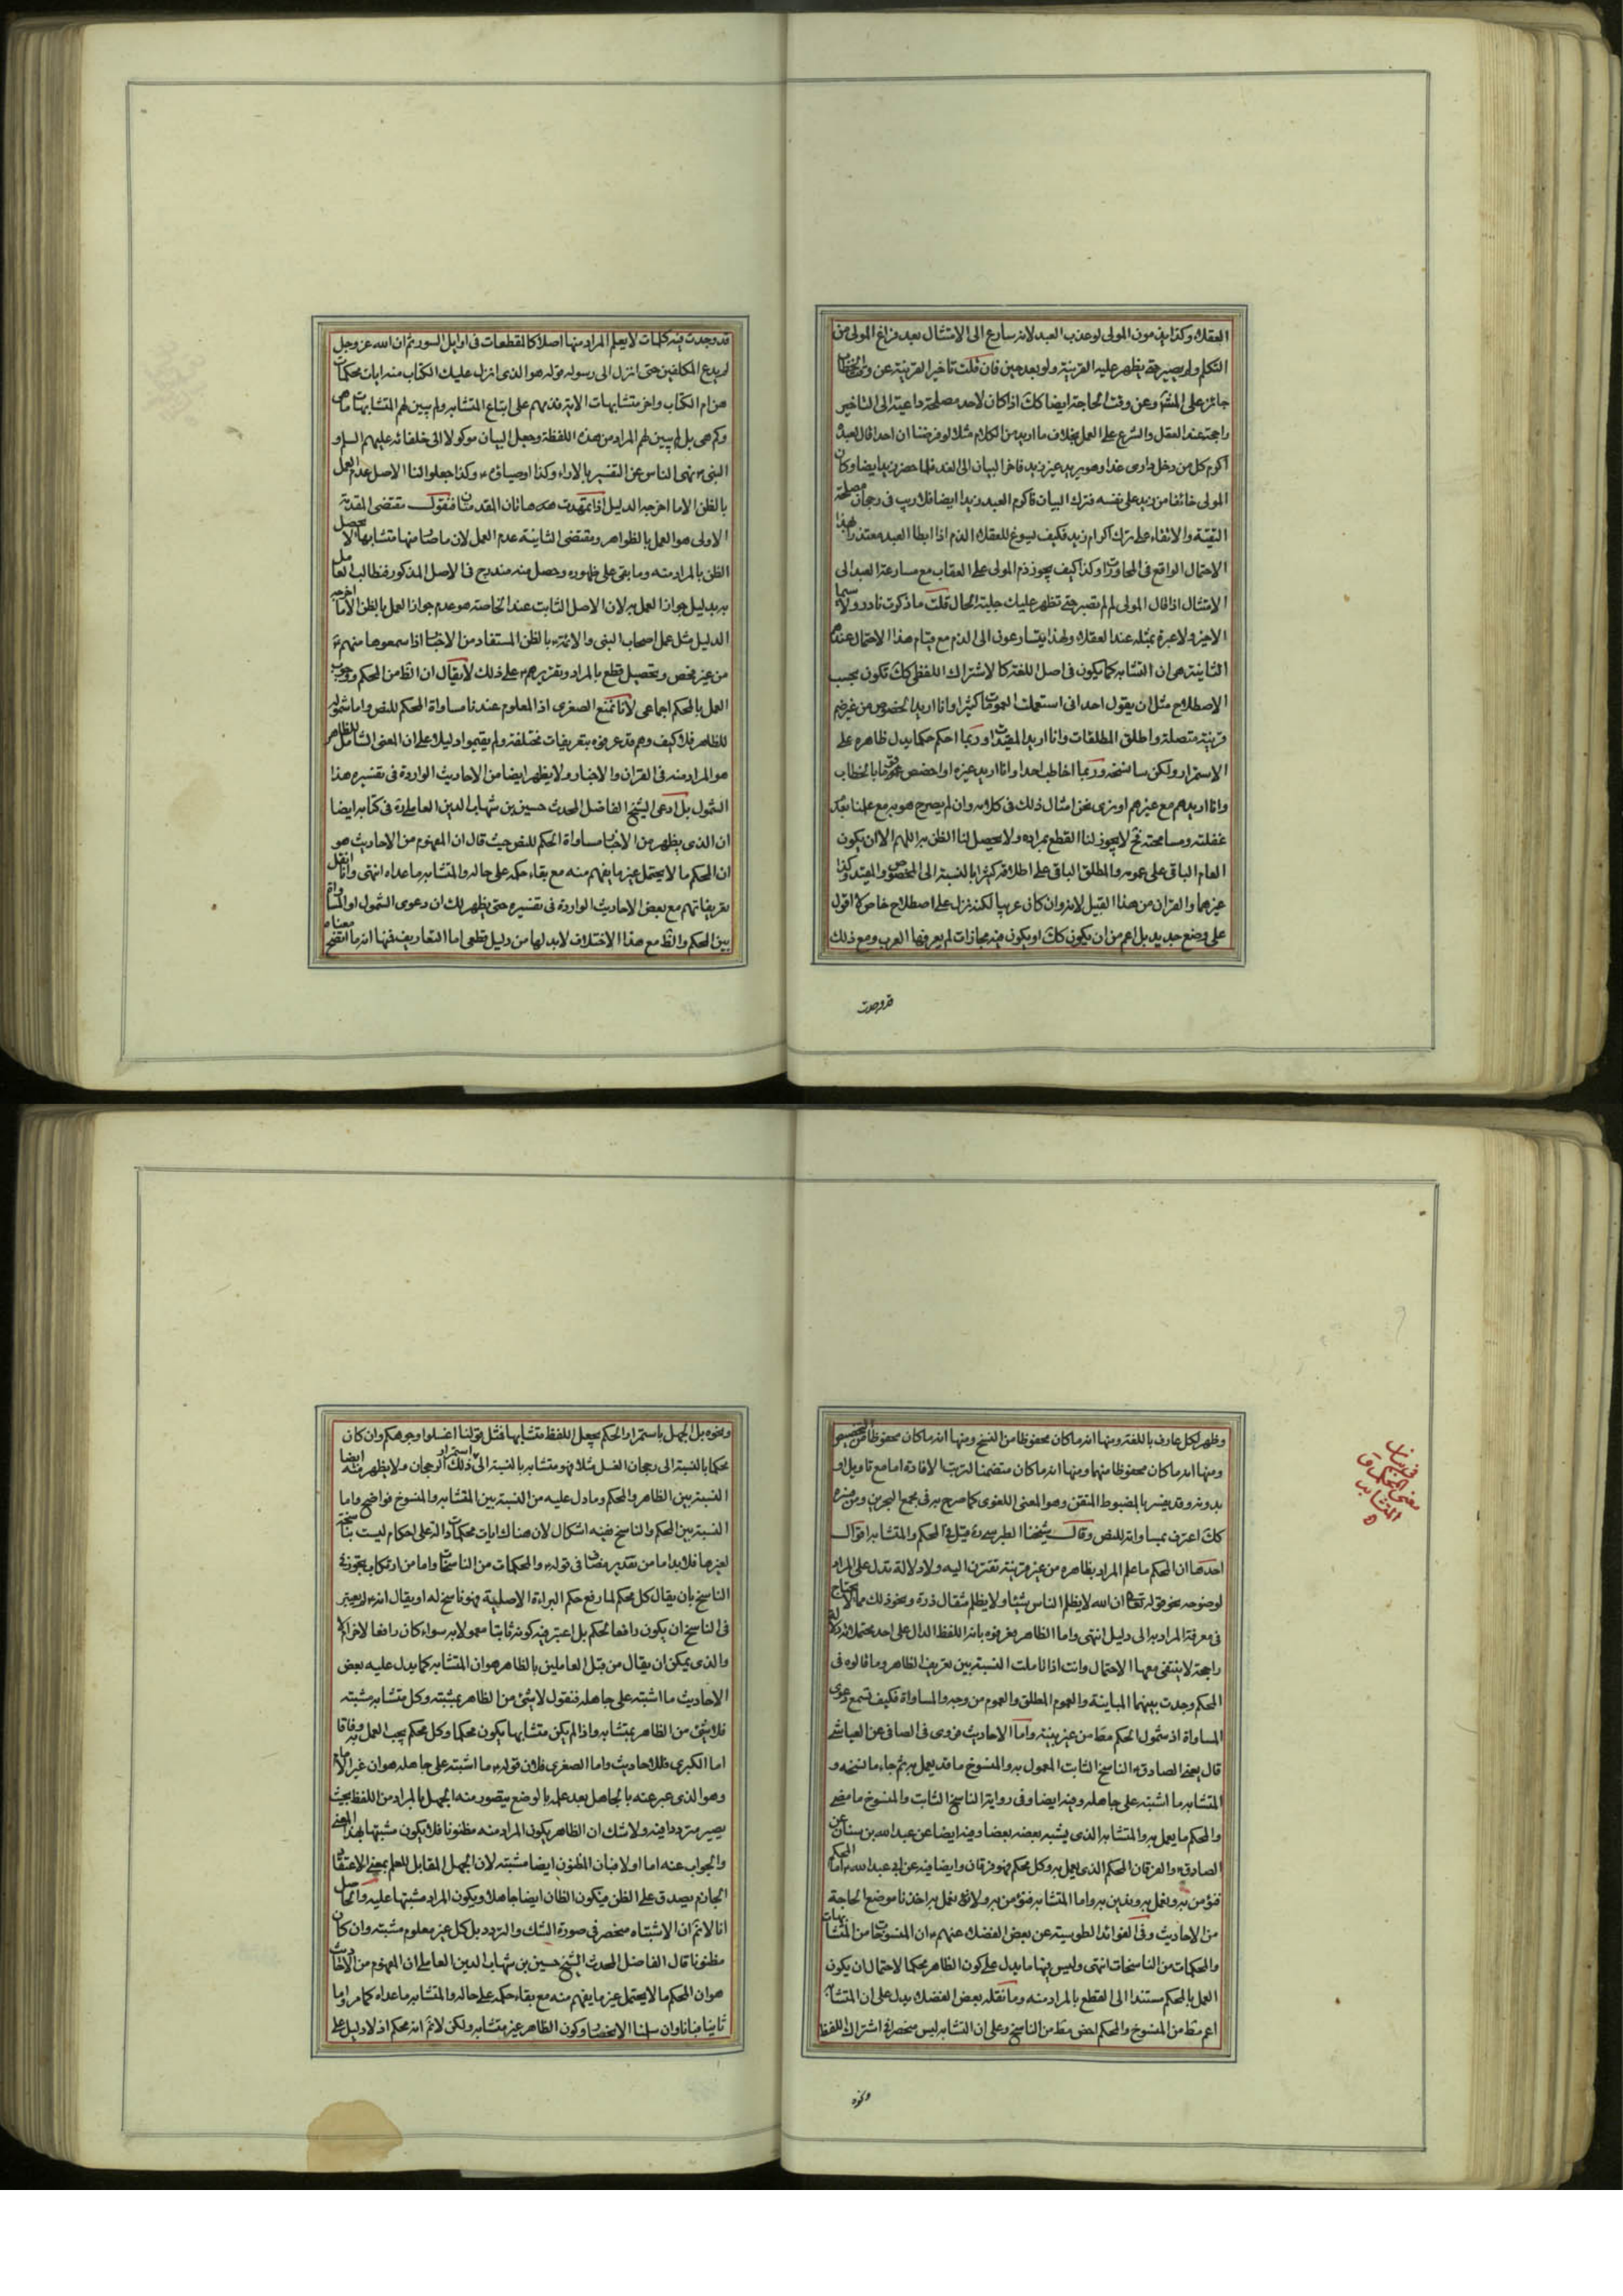 العقلاء وكذا يذمون المولى لو عذب العبد لانه سارع الى الامتثال بعد فراغ المولى من
التكلم ولم يصبر حتى يظهر عليه القرينة ولو بعد حين فان قلت تاخير القرينة عن وقت الخطاب
جائز على المش وعن وقت الحاجة ايضا كك اذا كان لاحد مصلحة داعية الى التاخير
راجحة عند العقل والشرع على العمل بخلاف ما اريد من الكلام مثلا لو فرضنا ان احدا قال لعبده
اكرم كل من دخل داري غدا وهو يريد غير زيد فاخر البيان الى الغد فلما حضر زيد ايضا وكان
المولى خائفا من زيد على نفسه فترك البيان فاكرم العبد زيدا ايضا فلا ريب في رجحان مصلحة
التقية والاتقاء على ترك اكرام زيد فكيف يسوغ للعقلاء الذم اذا ابطا العبد معتذرا بهذا
الاحتمال الواقع في المحاورات وكذا كيف يجوز ذم المولى على العقاب مع مسارعة العبد الى
الامتثال اذا قال المولى لم لم تصبر حتى تظهر عليك جلية الحال قلت ما ذكرت نادر ولا سيما
الاخير ولا عبرة بمثله عند العقلاء ولهذا يتسارعون الى الذم مع قيام هذا الاحتمال عندهم
الثانية هي ان التشابه كما يكون في اصل اللغة كالاشتراك اللفظي كك تكون بحسب
الاصطلاح مثل ان يقول احد اني استعملت العمومات كثيرا وانا اريد الخصوص من غير ضم
قرينة متصلة واطلق المطلقات وانا اريد المقيدات وربما احكم حكما يدل ظاهره على
الاستمرار ولكن سانسخه وربما اخاطب احدا وانا اريد غيره او اخصص قوما بالخطاب
وانا اريدهم مع غيرهم او نرى نحن امثال ذلك في كلامه وان لم يصرح هو به مع علمنا بعدم
غفلته ومسامحته فح لا يجوز لنا القطع بمراده ولا يحصل لنا الظن به اللهم الا ان يكون
العام الباقي على عمومه والمطلق الباقي على اطلاقه كثيرا بالنسبة الى المخصوص والمقيد وكذا
غيرهما والقران من هذا القبيل لانه وان كان عربيا لكنه نزل على اصطلاح خاص لا اقول
على وضع جديد بل اعم من ان يكون كك او يكون فيه مجازات لم يعرفها العرب ومع ذلك
قد وجدت
قد وجدت فيه كلمات لا يعلم المراد منها اصلا كالمقطعات في اوايل السور ثم ان الله عز وجل
لم يدع المكلفين حتى انزل الى رسوله قوله هو الذي انزل عليك الكتاب منه ايات محكمات
هن ام الكتاب واخر متشابهات الاية فذمهم على اتباع المتشابه ولم يبين لهم المتشابهات ما هي
وكم هي بل لم يبين لهم المراد من هذه اللفظة وجعل البيان موكولا الى خلفائه عليهم السلام و
النبي ص نهى الناس عن التفسير بالاراء وكذا اوصياؤه ع وكذا جعلوا لنا الاصل عدم العمل
بالظن الا ما اخرجه الدليل اذا تمهدت هاتان المقدمتان فنقول مقتضى المقدمة
الاولى هو العمل بالظواهر ومقتضى الثانية عدم العمل لان ما صار منها متشابها لا يحصل
الظن بالمراد منه وما بقي على ظهوره وحصل منه مندرج في الاصل المذكور فنطالب العامل
به بدليل جواز العمل به لان الاصل الثابت عند الخاصة هو عدم جواز العمل بالظن الا ما اخرجه
الدليل مثل عمل اصحاب النبي والائمة ع بالظن المستفاد من الاخبار اذا سمعوها منهم ع
من غير فحص وتحصيل قطع بالمراد وتقريرهم ع على ذلك لا يقال ان الظ من المحكم ووجوب
العمل بالمحكم اجماعي لانا نمنع الصغرى اذ المعلوم عندنا مساواة المحكم للنص واما شموله
للظاهر فلا كيف وهم قد عرفوه بتعريفات مختلفة ولم يقيموا دليلا على ان المعنى الشامل للظاهر
هو المراد منه في القران والاخبار ولا يظهر ايضا من الاحاديث الواردة في تفسيره هذا
الشمول بل ادعى الشيخ الفاضل المحدث حسين بن شهاب الدين العاملي ره في كتابه ايضا
ان الذي يظهر من الاخبار مساواة المحكم للنص حيث قال ان المفهوم من الاحاديث هو
ان المحكم ما لا يحتمل غير ما يفهم منه مع بقاء حكمه على حاله والمتشابه ما عداه انتهى وانا انقل
تعريفاتهم مع بعض الاحاديث الواردة في تفسيره حتى يظهر لك ان دعوى الشمول او المساواة
بين المحكم والظ مع هذا الاختلاف لابد لها من دليل قطعي اما التعاريف فمنها انه ما اتضح معناه
وظهر لكل عارف باللغة ومنها انه ما كان محفوظا من النسخ ومنها انه ما كان محفوظا من التخصيص
ومنها انه ما كان محفوظا منهما ومنها انه ما كان متضمنا لترتيب الافادة اما مع تاويل او
بدونه وقد يفسر بالمضبوط المتقن وهو المعنى اللغوي كما صرح به في مجمع البحرين ومن فسره
كك اعترف بمساواته للنص وقال شيخنا الطبرسي ره قيل في المحكم والمتشابه اقوال
احدها ان المحكم ما علم المراد بظاهره من غير قرينة تقترن اليه ولا دلالة تدل على المراد
لوضوحه نحو قوله تعالى ان الله لا يظلم الناس شيئا ولا يظلم مثقال ذرة ونحو ذلك مما لا يحتاج
في معرفة المراد به الى دليل انتهى واما الظاهر فعرفوه بانه اللفظ الدال على احد محتملاته دلالة
راجحة لا ينتفي معها الاحتمال وانت اذا تاملت النسبة بين تعريف الظاهر وما قالوه في
المحكم وجدت بينهما المباينة والعموم المطلق والعموم من وجه والمساواة فكيف تسمع دعوى
المساواة اذ شمول المحكم مط من غير بينة واما الاحاديث فروى في الصافي عن العياشي
قال بعض الصادق ع الناسخ الثابت المعمول به والمنسوخ ما قد يعمل به ثم جاء ما نسخه و
المتشابه ما اشتبه على جاهله وفيه ايضا وفي رواية الناسخ الثابت والمنسوخ ما مضى
والمحكم ما يعمل به والمتشابه الذي يشبه بعضه بعضا وفيه ايضا عن عبد الله بن سنان عن
الصادق ع والفرقان المحكم الذي يعمل به وكل محكم فهو فرقان وايضا فيه عن ابي عبد الله ع اما المحكم
فنؤمن به ونعمل به وندين به واما المتشابه فنؤمن به ولا نعمل به اخذنا موضع الحاجة
من الاحاديث وفي الفوائد الطوسية عن بعض الفضلاء عنهم ع ان المنسوخات من المتشابهات
والمحكمات من الناسخات انتهى وليس فيها ما يدل على كون الظاهر محكما لاحتمال ان يكون
العمل بالمحكم مستندا الى القطع بالمراد منه وما نقله بعض الفضلاء يدل على ان المتشابه
اعم مط من المنسوخ والمحكم اخص مط من الناسخ وعلى ان التشابه ليس منحصرا في اشتراك اللفظ
ونحوه
في بيان
معنى المحكم و
المتشابه
ونحوه بل الجهل باستمرار الحكم يجعل اللفظ متشابها فمثل قولنا اغسلوا وجوهكم وان كان
محكما بالنسبة الى رجحان الغسل مثلا فهو متشابه بالنسبة الى استمرار ذلك الرجحان ولا يظهر منه ايضا
النسبة بين الظاهر والمحكم وما دل عليه من النسبة بين المتشابه والمنسوخ فواضح واما
النسبة بين المحكم والناسخ ففيه اشكال لان هناك ايات محكمات دالة على احكام ليست بناسخة
لغيرها فلابد اما من تقدير مضاف في قوله ع والمحكمات من الناسخات واما من ارتكاب تجوز في
الناسخ بان يقال كل محكم لما رفع حكم البراءة الاصلية فهو ناسخ له او يقال انه لا يعتبر
في الناسخ ان يكون رافعا لحكم بل اعتبر فيه كونه ثابتا معمولا به سواء كان رافعا لاخر ام لا
والذي يمكن ان يقال من قبل العاملين بالظاهر هو ان المتشابه كما يدل عليه بعض
الاحاديث ما اشتبه على جاهله فنقول لا شئ من الظاهر بمشتبه وكل متشابه مشتبه
فلا شئ من الظاهر بمتشابه واذا لم يكن متشابها يكون محكما وكل محكم يجب العمل به وفاقا
اما الكبرى فللاحاديث واما الصغرى فلان قوله ع ما اشتبه على جاهله هو ان غير الامام
وهو الذي عبر عنه بالجاهل بعد علمه بالوضع يتصور منه الجهل بالمراد من اللفظ بحيث
يصير مترددا فيه ولا شك ان الظاهر يكون المراد منه مظنونا فلا يكون مشتبها بهذا المعنى
والجواب عنه اما اولا فبان المظنون ايضا مشتبه لان الجهل المقابل للعلم بمعنى الاعتقاد
الجازم يصدق على الظن فيكون الظان ايضا جاهلا ويكون المراد مشتبها عليه والحاصل
انا لا نم ان الاشتباه منحصر في صورة الشك والتردد بل كل غير معلوم مشتبه وان كان
مظنونا قال الفاضل المحدث الشيخ حسين بن شهاب الدين العاملي ان المفهوم من الاحاديث
هو ان المحكم ما لا يحتمل غير ما يفهم منه مع بقاء حكمه على حاله والمتشابه ما عداه كما مر واما
ثانيا فبانا وان سلمنا الانحصار وكون الظاهر غير متشابه ولكن لا نم انه محكم اذ لا دليل على